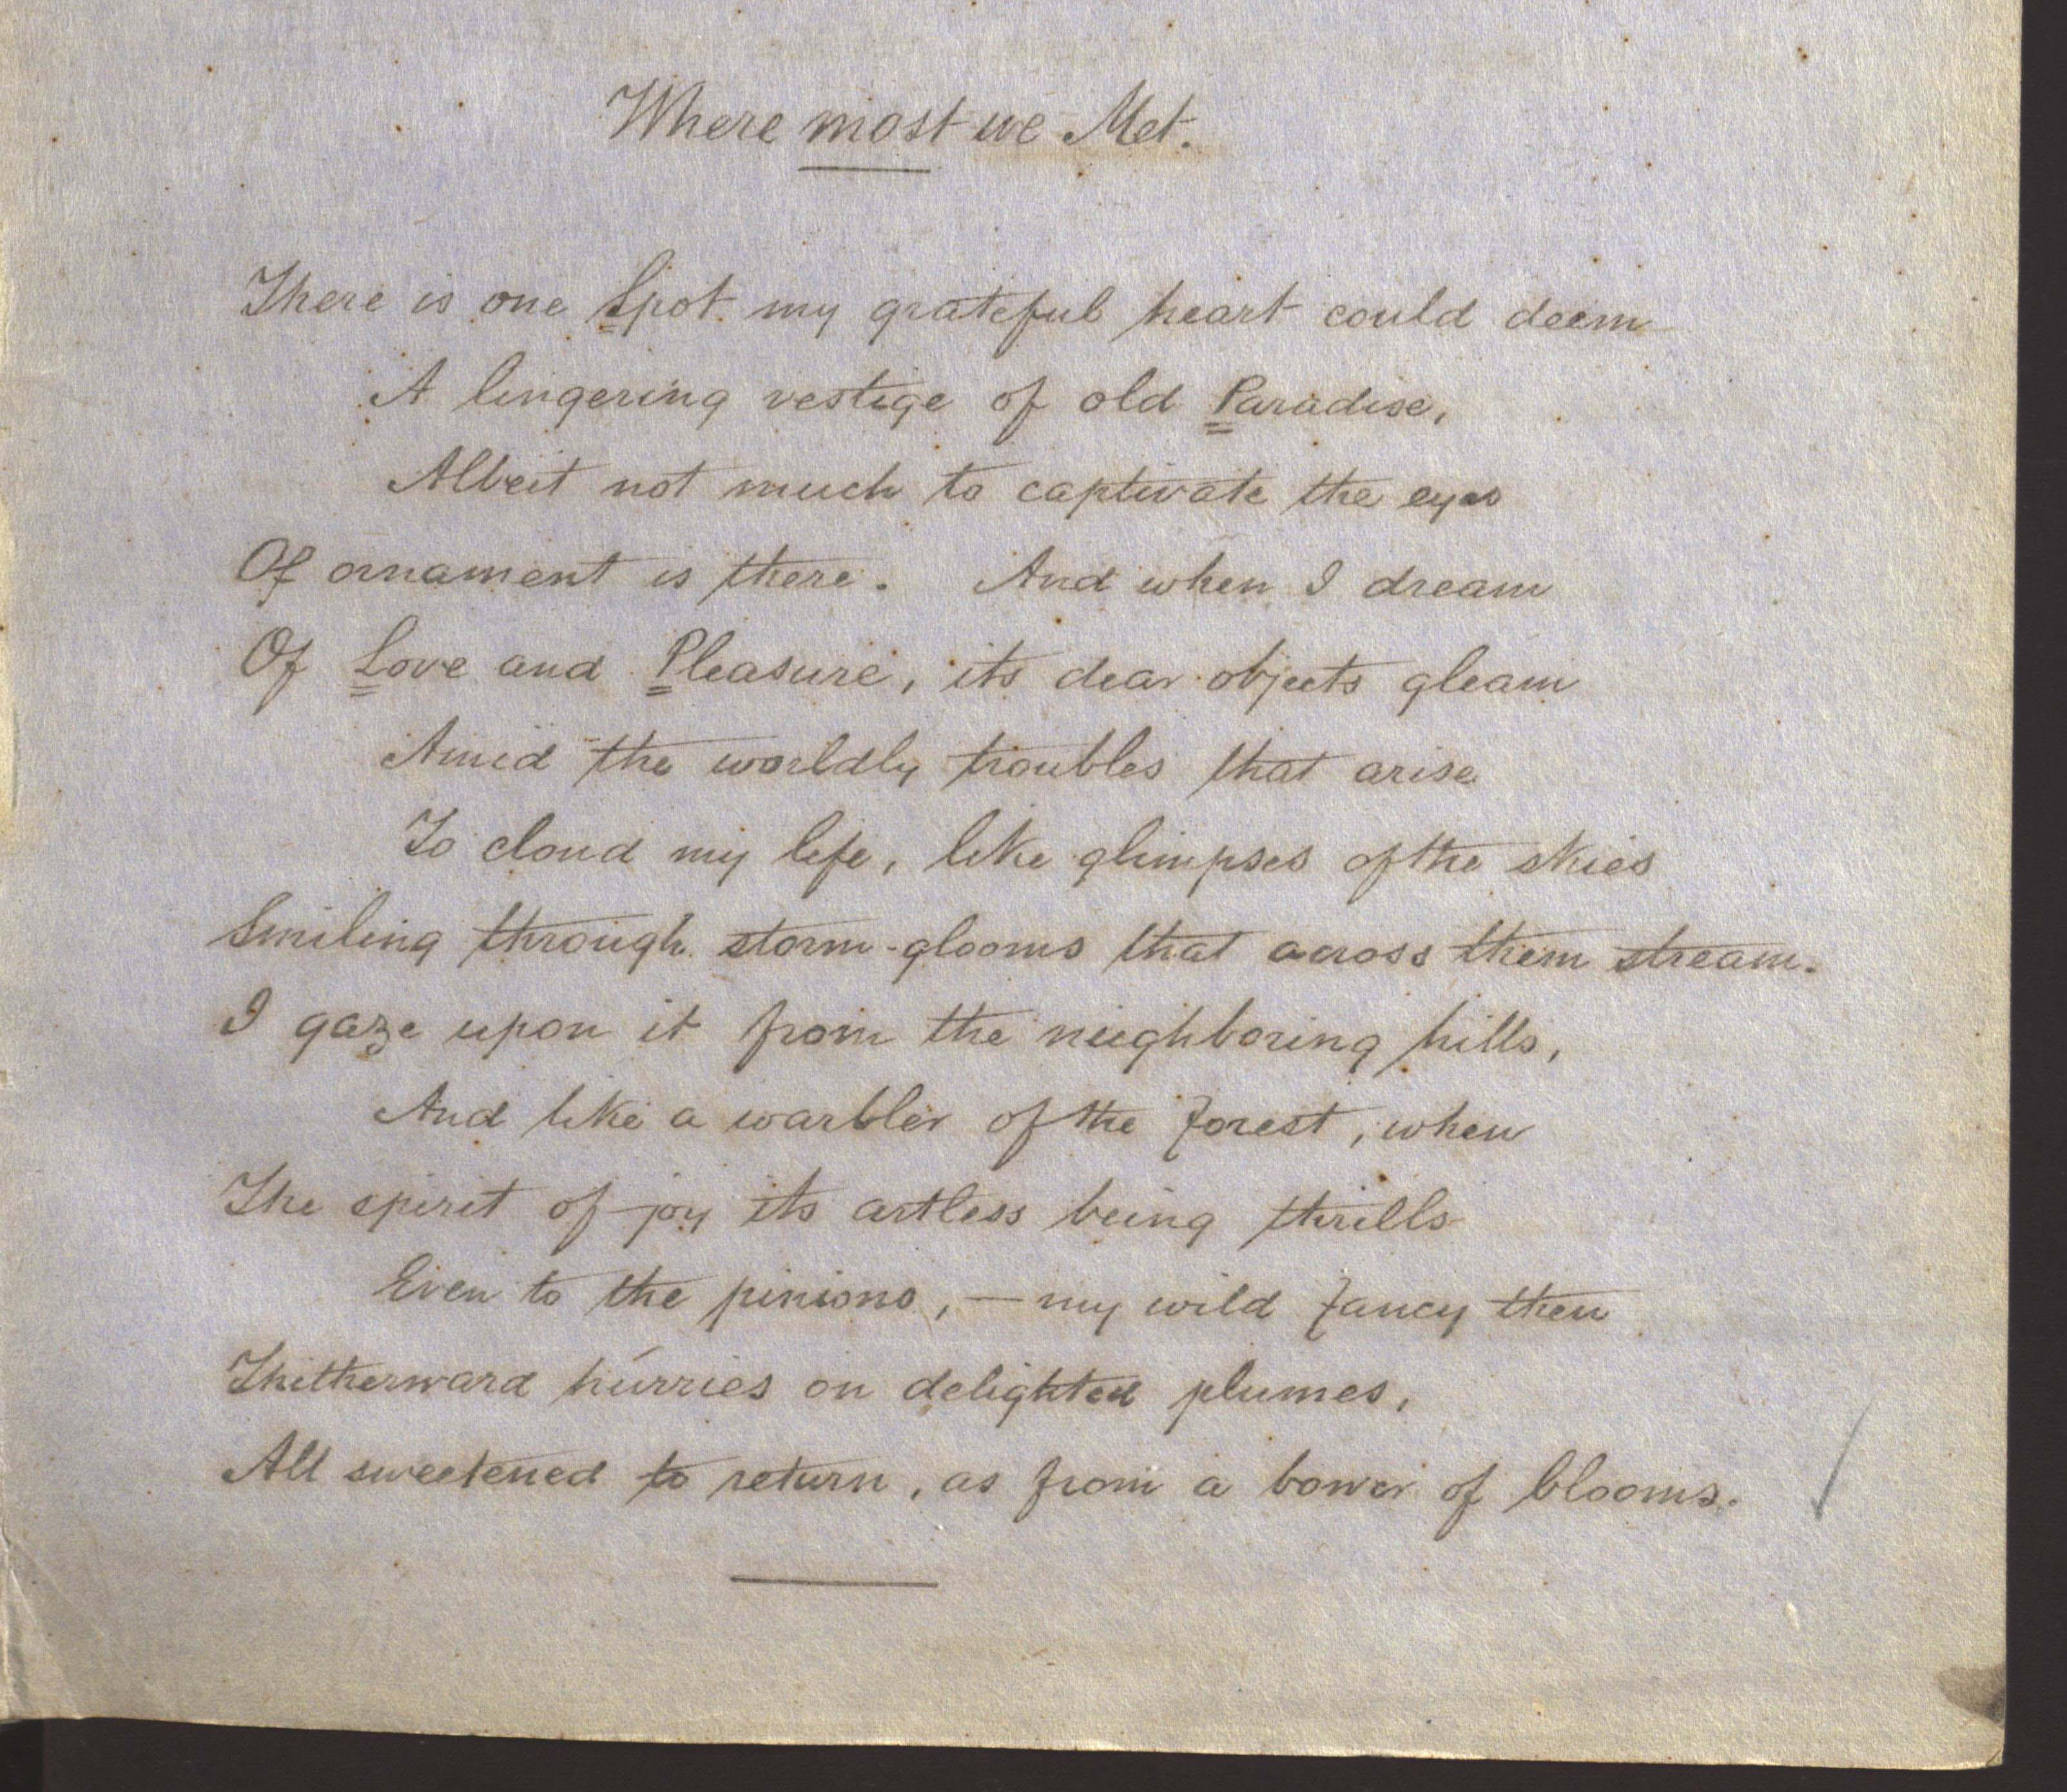 Where most we Met.
There is one Spot my grateful heart could deem
A lingering vestige of old Paradise,
Albeit not much to captivate the eyes
Of ornament is there. And when I dream
Of Love and Pleasure, its dear objects gleam
Amid the worldly troubles that arise
To cloud my life, like glimpses of the skies
Smiling through storm-glooms that across them stream.
I gaze upon it from the neighboring hills,
And like a warbler of the forest, when
The spirit of joy its artless being thrills
Even to the pinions, — my wild fancy then
Thitherward hurries on delighted plumes,
All sweetened to return, as from a bower of blooms.